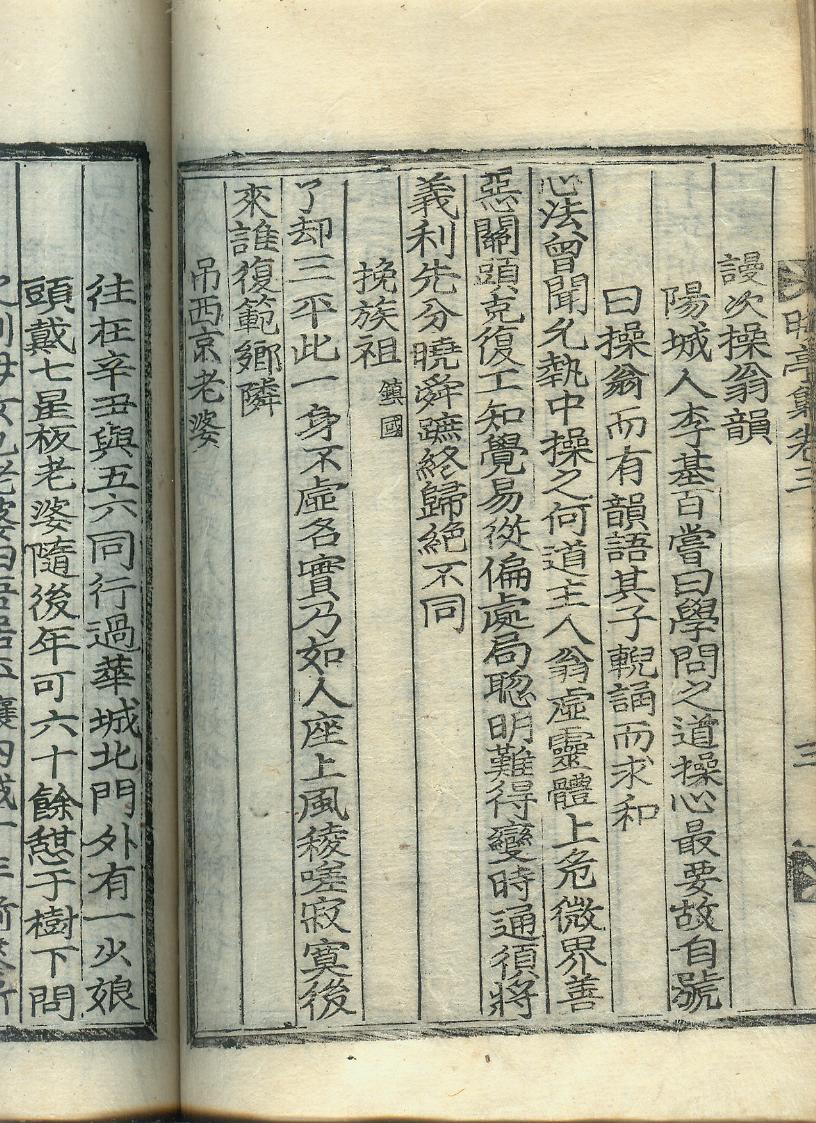 亭集卷三
三
謾次操翁韻
陽城人李基百嘗曰學問之道操心最要故自號
曰操翁而有韻語其子輗誦而求和
心法曾聞允執中操之何道主人翁虛靈體上危微界善
惡關頭克復工知覺易從偏處局聰明難得變時通須將
義利先分曉舜蹠終歸絶不同
挽族祖 鎭國
了却三平此一身不虛名實乃如人座上風稜嗟寂寞後
來誰復範鄉隣
吊西京老婆
徃在辛丑與五六同行過華城北門外有一少娘
頭戴七星板老婆隨後年可六十餘憇于樹下問